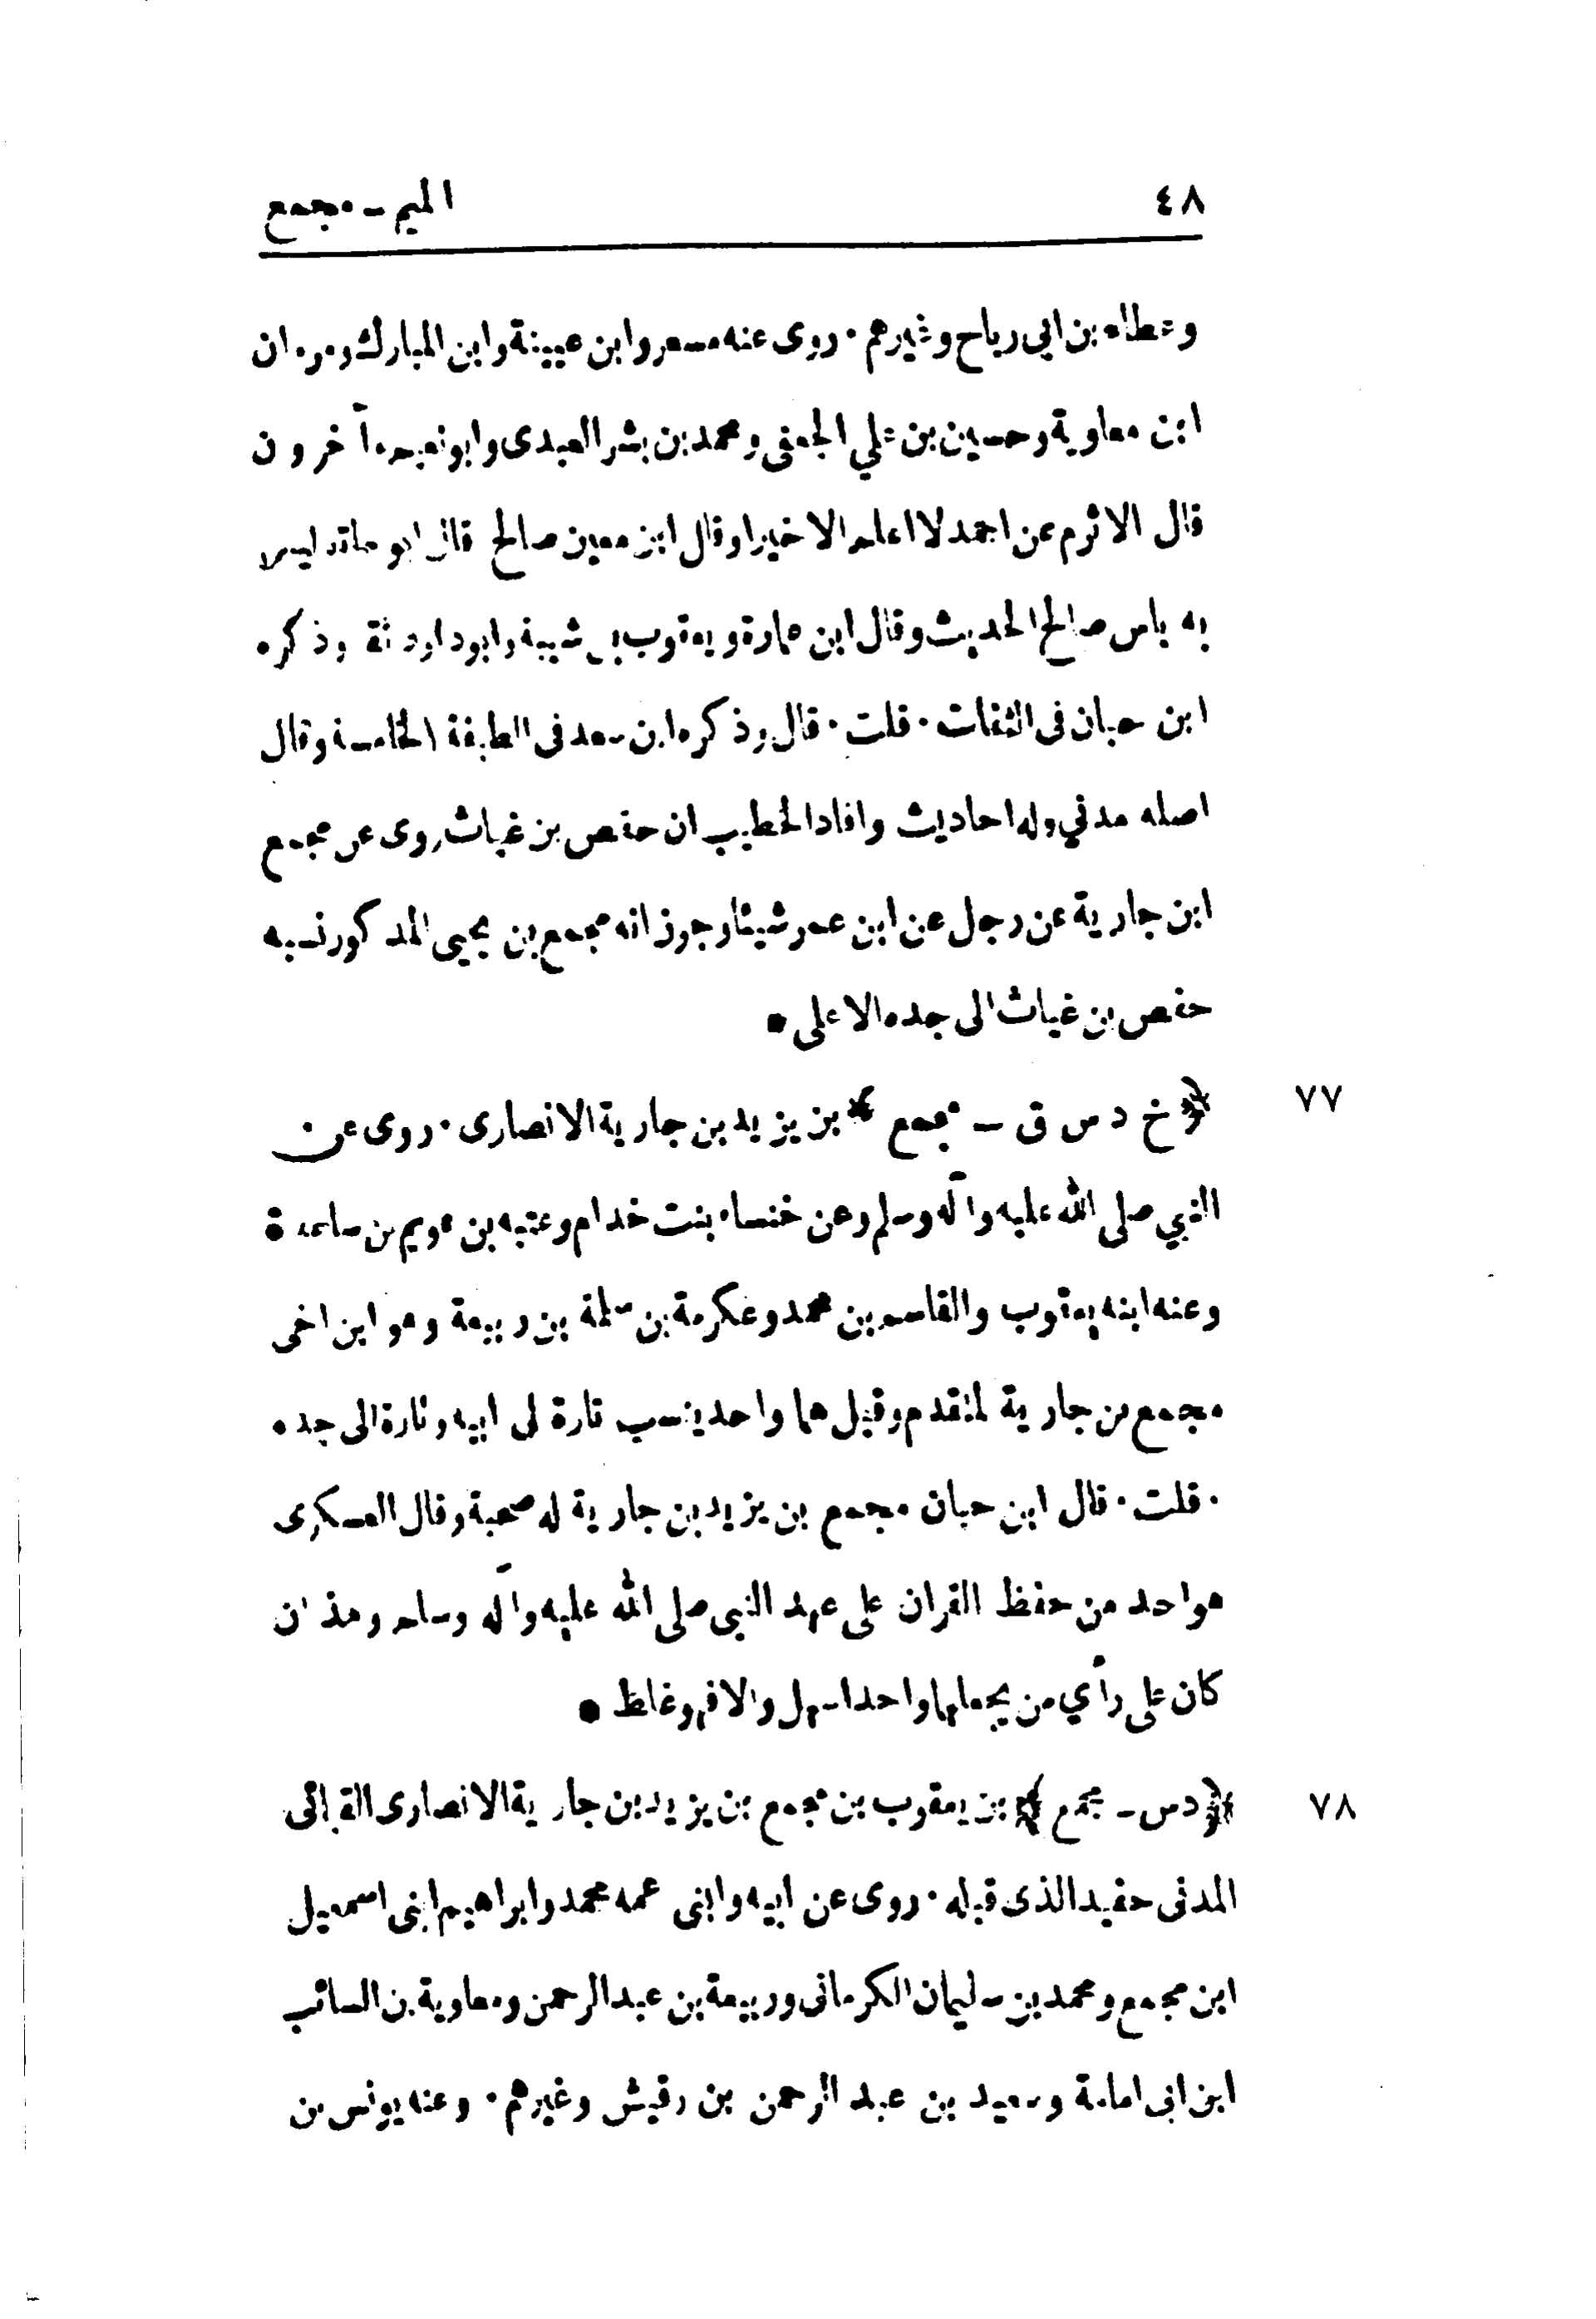 ٤٨
الميم ـ مجمع
وعطاء بن ابي رباح وغيرهم ۰ روى عنه مسعر وابن عيينة وابن المبارك ومروان
ابن معاوية وحسين بن علي الجعفى ومحمد بن بشر العبدى وابو نعيم وآخرون
قال الاثرم عن احمد لا اعلم الا خيرا وقال ابن معين صالح قال ابو حاتم ليس
به باس صالح الحديث وقال ابن عمارة ويعقوب بن شيبة وابو داود ثقة وذكره
ابن حبان فى الثقات ۰ قلت ۰ قال وذكره ابن سعد فى الطبقة الخامسة وقال
اصله مدني وله احاديث وافاد الخطيب ان حفص بن غياث روى عن مجمع
ابن جارية عن رجل عن ابن عمر شيئا وجوز انه مجمع بن يحيى المذكور نسبه
حفص بن غياث الى جده الاعلى ●
٧٧
﴿ خ د س ق ـ مجمع ﴾ بن يزيد بن جارية الانصارى ۰ روى عن
النبي صلى الله عليه وآله وسلم وعن خنساء بنت خدام وعتبه بن عويم بن ساعدة
وعنه ابنه يعقوب والقاسم بن محمد وعكرمة بن سلمة بن ربيعة وهو ابن اخى
مجمع بن جارية المتقدم وقيل هما واحد ينسب تارة الى ابيه وتارة الى جده
۰ قلت ۰ قال ابن حبان مجمع بن يزيد بن جارية له صحبة وقال العسكرى
هو احد من حفظ القران على عهد النبى صلى الله عليه وآله وسلم وهذ ان
كان على رأي من يجعلهما واحدا سهل والا فهو غلط ●
٧٨
﴿ د س ـ مجمع ﴾ بن يعقوب بن مجمع بن يزيد بن جارية الانصارى القبائى
المدنى حفيد الذى قبله ۰ روى عن ابيه وابنى عمه محمد وابراهيم ابنى اسمعيل
ابن مجمع ومحمد بن سليمان الكرمانى وربيعة بن عبد الرحمن ومعاوية بن السائب
ابن ابى امامة وسعيد بن عبد الرحمن بن رقيش وغيرهم ۰ وعنه يونس بن